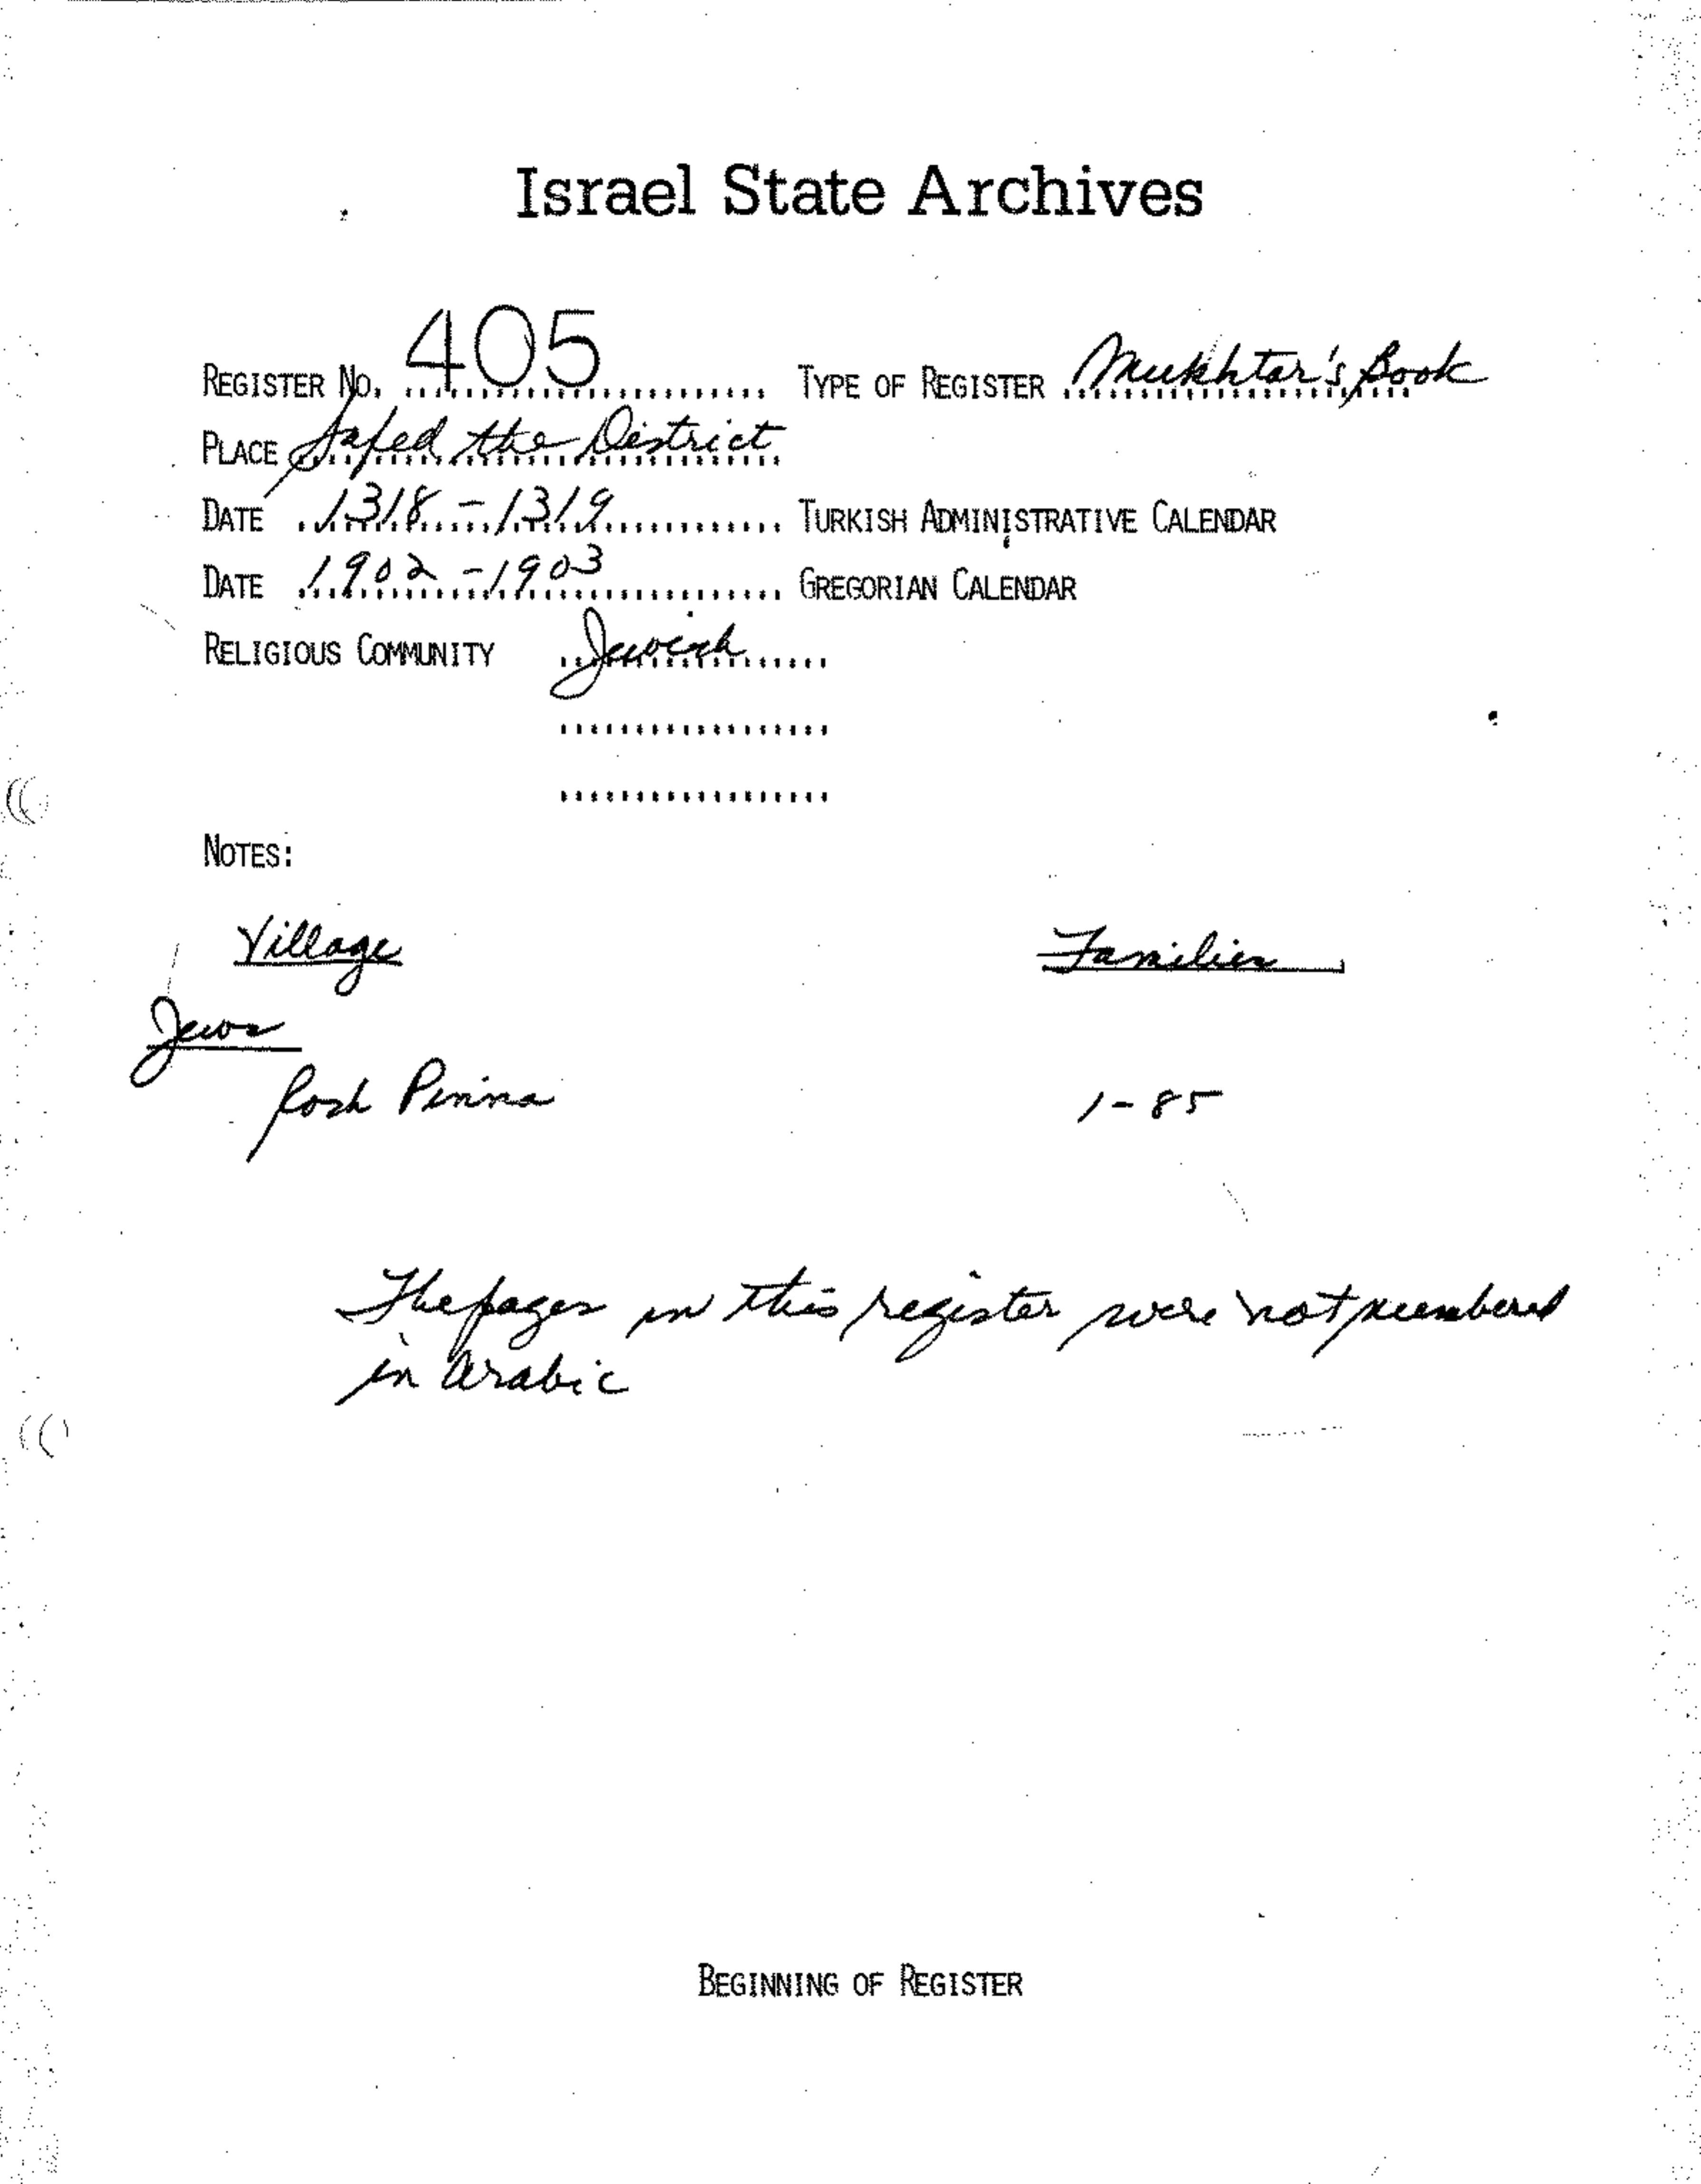 Israel State Archives
REGISTER NO. 405 TYPE OF REGISTER Mukhtar's Book
PLACE Safed the District
DATE 1318-1319 TURKISH ADMINISTRATIVE CALENDAR
DATE 1902-1903 GREGORIAN CALENDAR
RELIGIOUS COMMUNITY Jewish
NOTES:
Village Families
Jews
Rosh Pinna 1-85
The pages in this register were not numbered
in Arabic
BEGINNING OF REGISTER